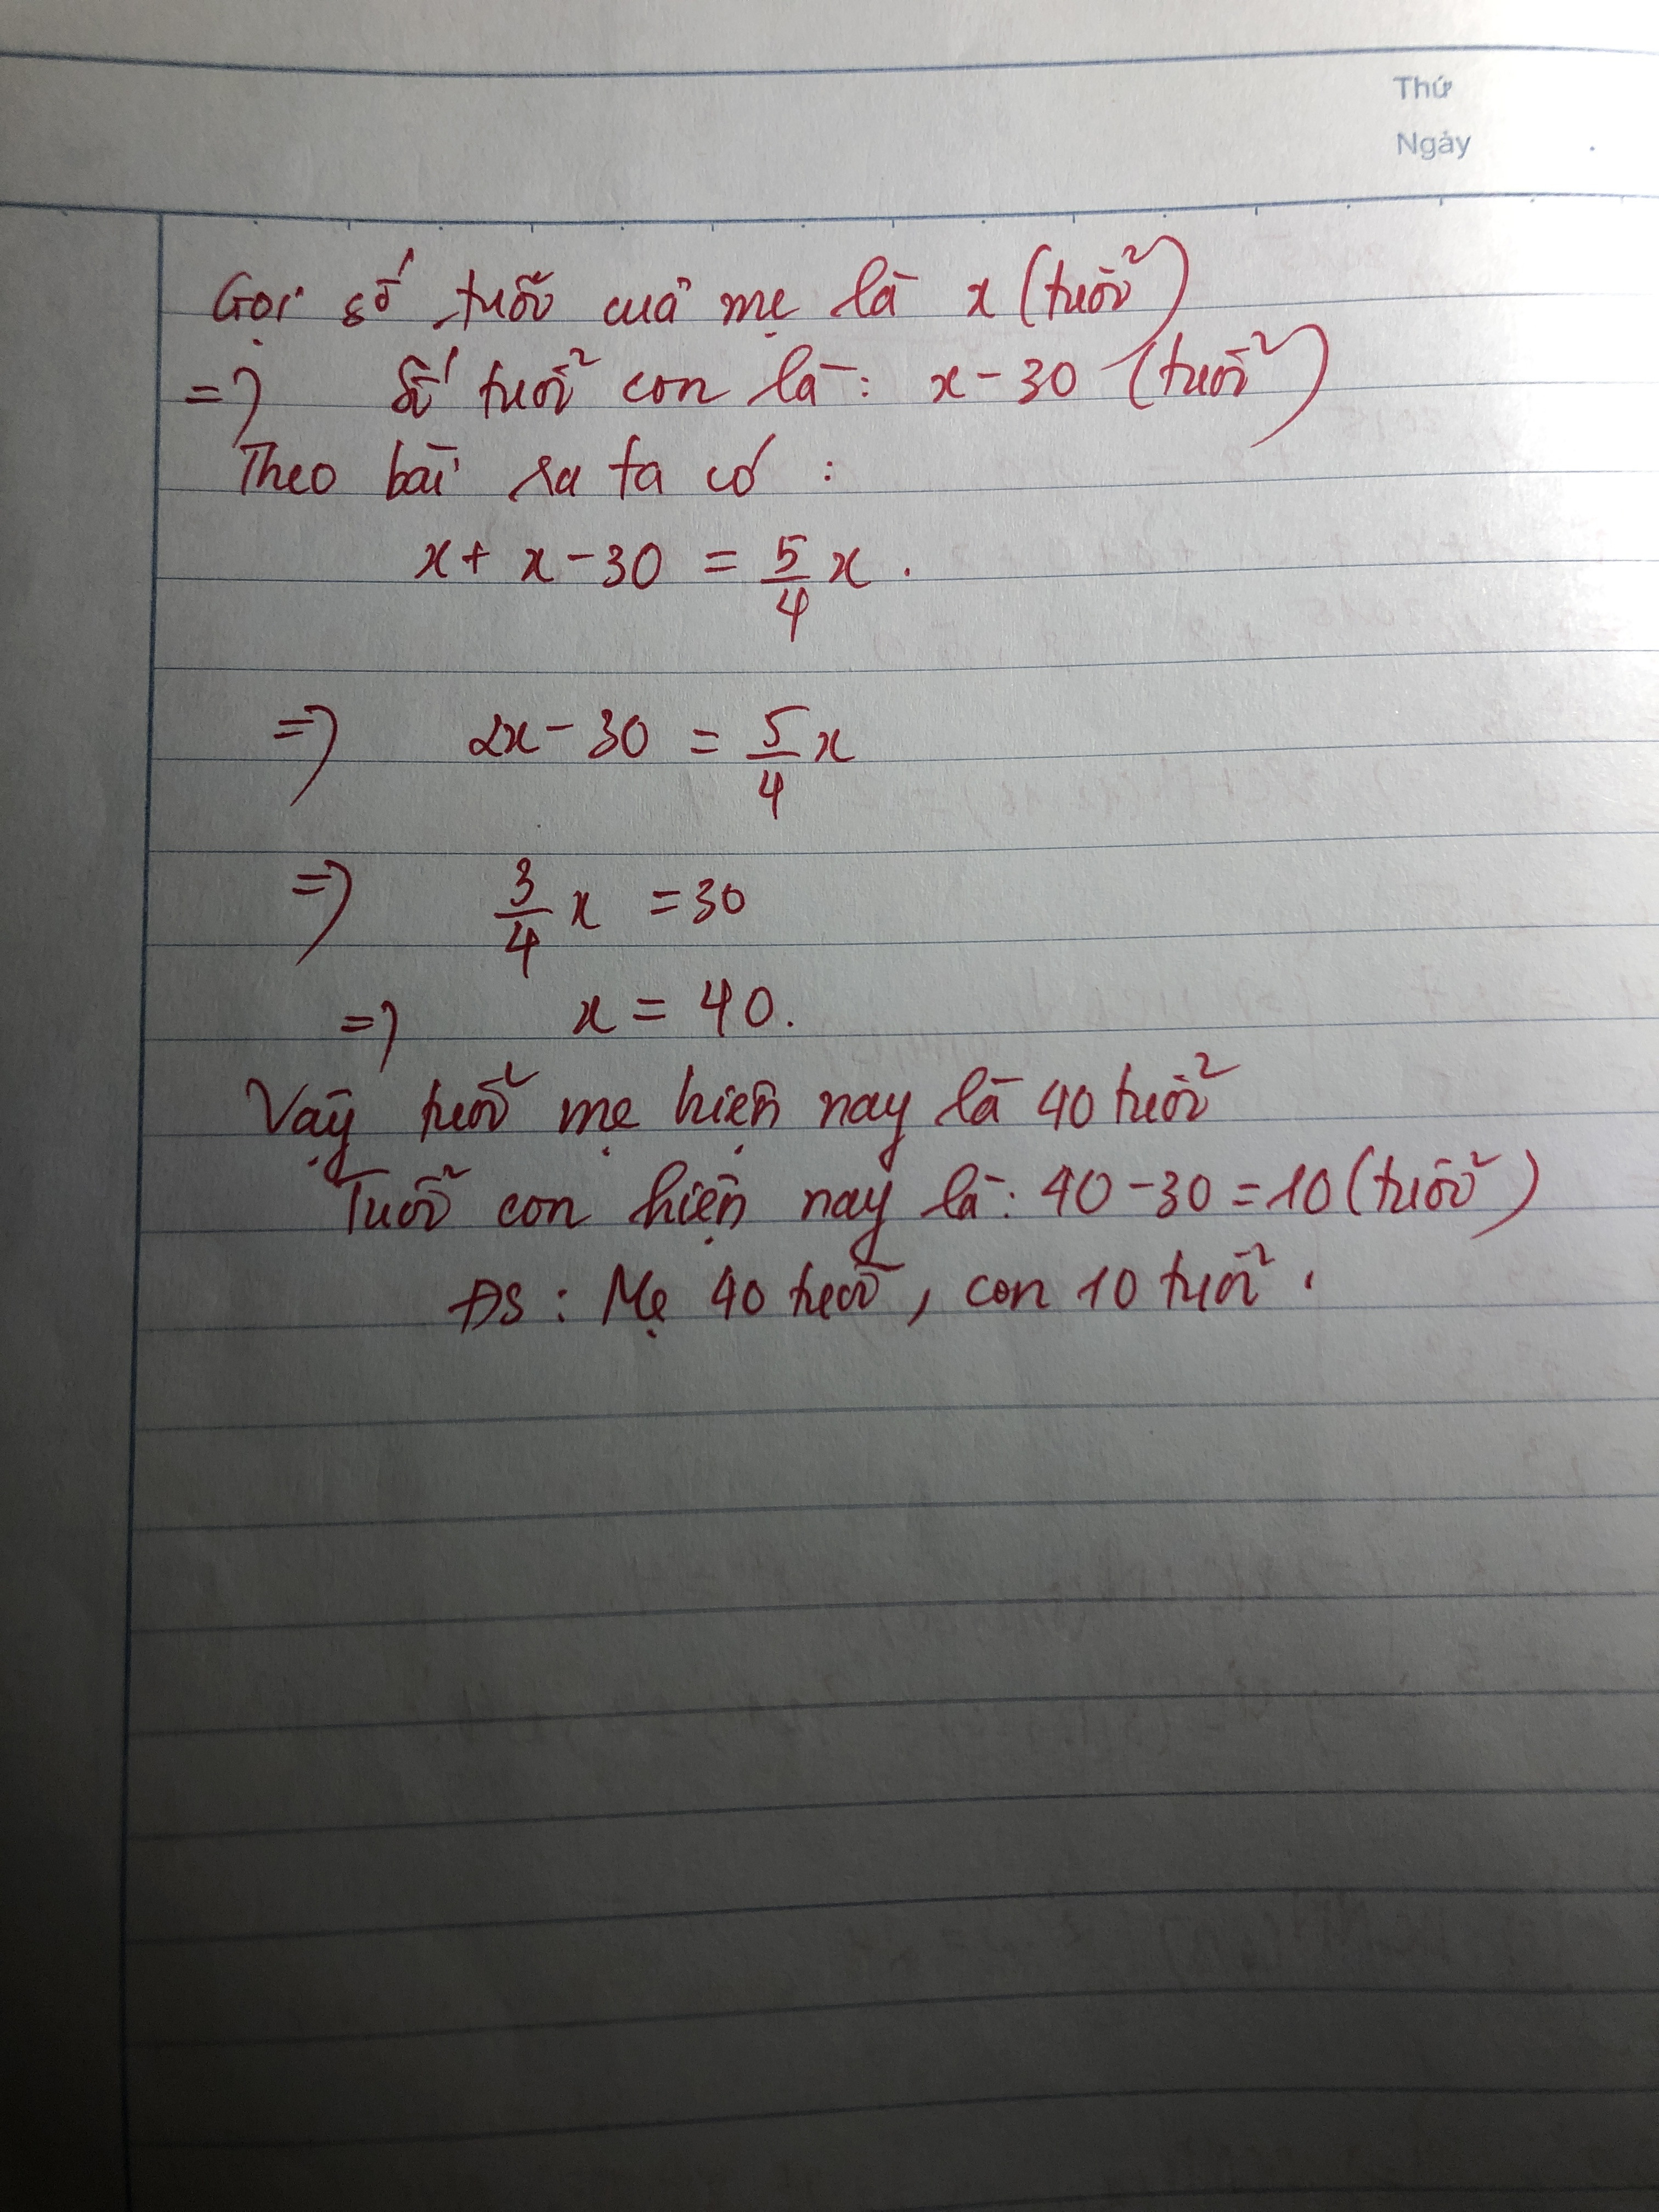 Thứ
Ngày
Gọi số tuổi của mẹ là x (tuổi)
=> Số tuổi con là: x - 30 (tuổi)
Theo bài ra ta có :
x + x - 30 = 5/4 x .
=> 2x - 30 = 5/4 x
=> 3/4 x = 30
=> x = 40.
Vậy tuổi mẹ hiện nay là 40 tuổi
Tuổi con hiện nay là: 40 - 30 = 10 (tuổi)
ĐS : Mẹ 40 tuổi, con 10 tuổi.